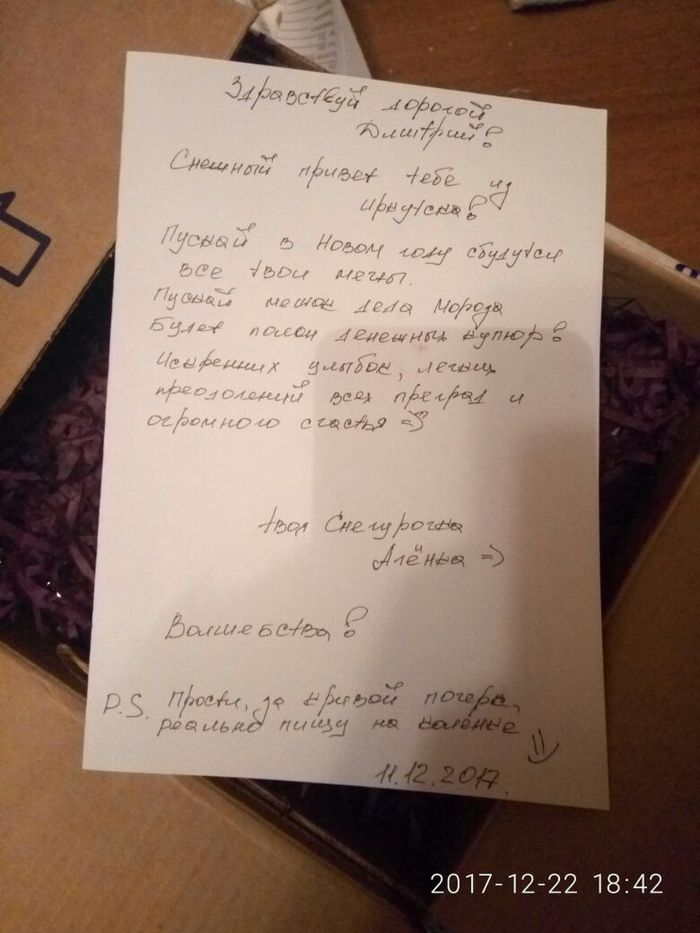 Здравствуй дорогой
Дмитрий!
Снежный привет тебе из
Иркутска!
Пускай в Новом году сбудутся
все твои мечты.
Пускай мешок деда Мороза
Будет полон денежных купюр!
Искренних улыбок, легких
преодолений всех преград и
огромного счастья =)
твоя Снегурочка
Алёнка =)
Волшебства!
P.S. Прости, за кривой почерк,
реально пишу на коленке
=)
11.12.2017.
2017-12-22 18:42